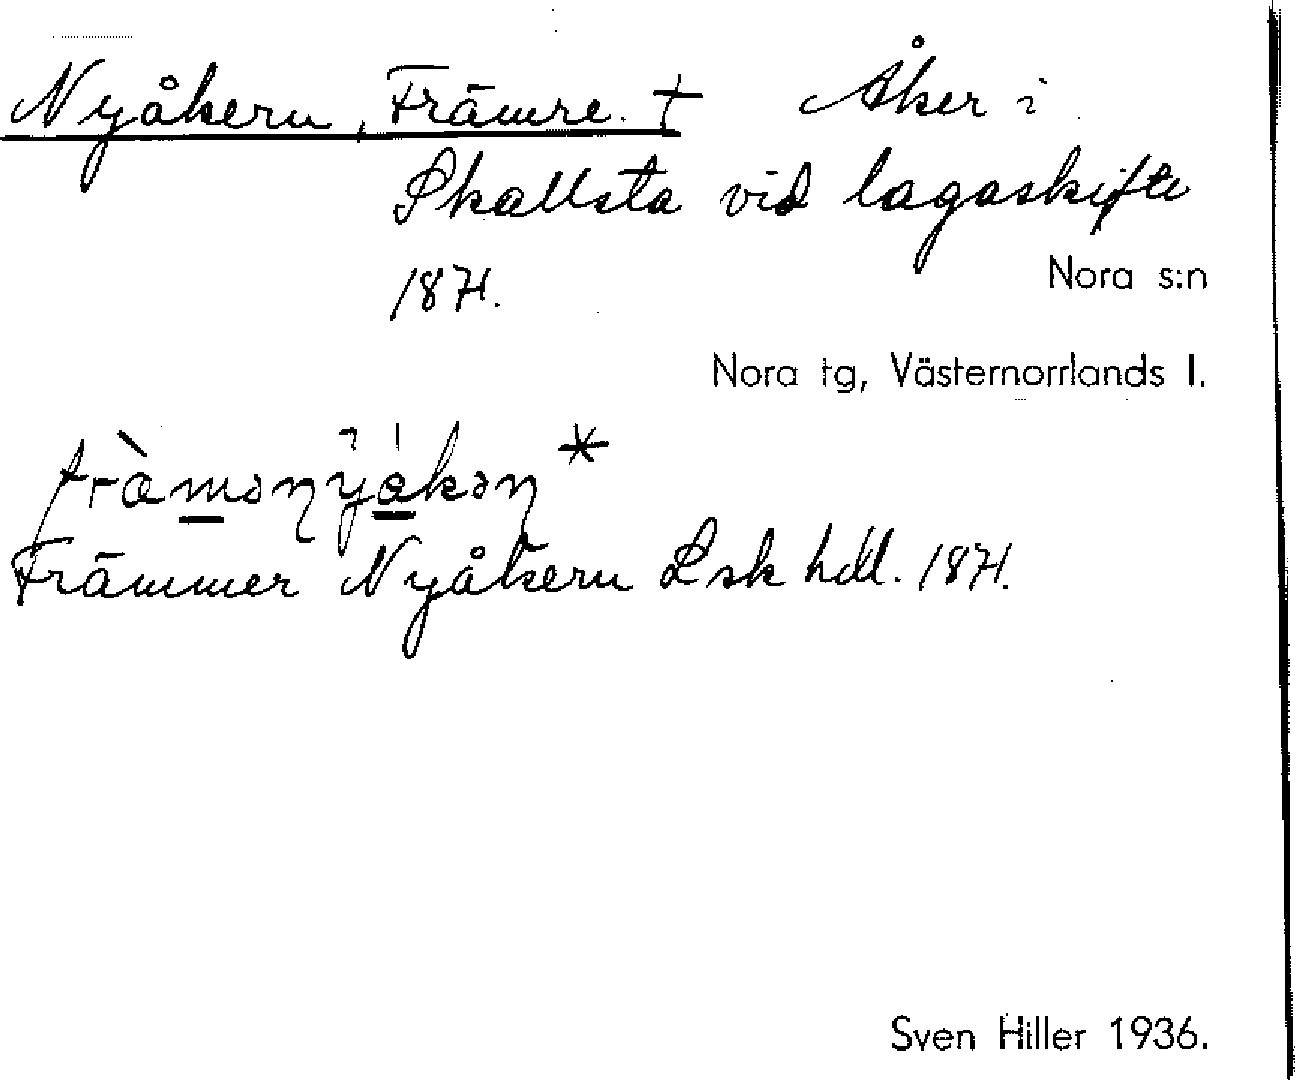 Nyåkern, Främre. † Åker i
Skallsta vid lagaskifte
1871.
Nora s:n
Nora tg, Västernorrlands l.
Främmer Nyåkern Lsk hdl. 1871.
Sven Hiller 1936.